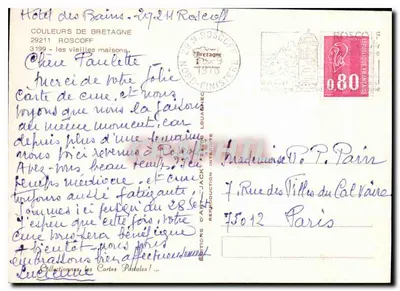 Hôtel des Bains - 29211 Roscoff
COULEURS DE BRETAGNE
29211 ROSCOFF
3199 - les vieilles maisons
Chère Paulette
Merci de votre jolie
carte de cure, et nous
voyons que nous la faisons
au même moment, car
depuis plus d'une semaine
nous voici revenus à Roscoff
Avez-vous beau temps, ici
temps médiocre, et cure
toujours aussi fatigante,
sommes ici jusqu'au 28 Sept
J'espère que cette fois, votre
cure vous sera bénéfique
à bientôt - nous vous
embrassons bien affectueusement
Lucienne
Collectionnez les Cartes Postales ! ...
EDITIONS D'ART JACK
REPRODUCTION INTERDITE
29 ROSCOFF
Bretagne
1976
NORD-FINISTERE
ROSCOFF
0,80
Mademoiselle P. Parin
7 Rue des Filles du Calvaire
75012 Paris